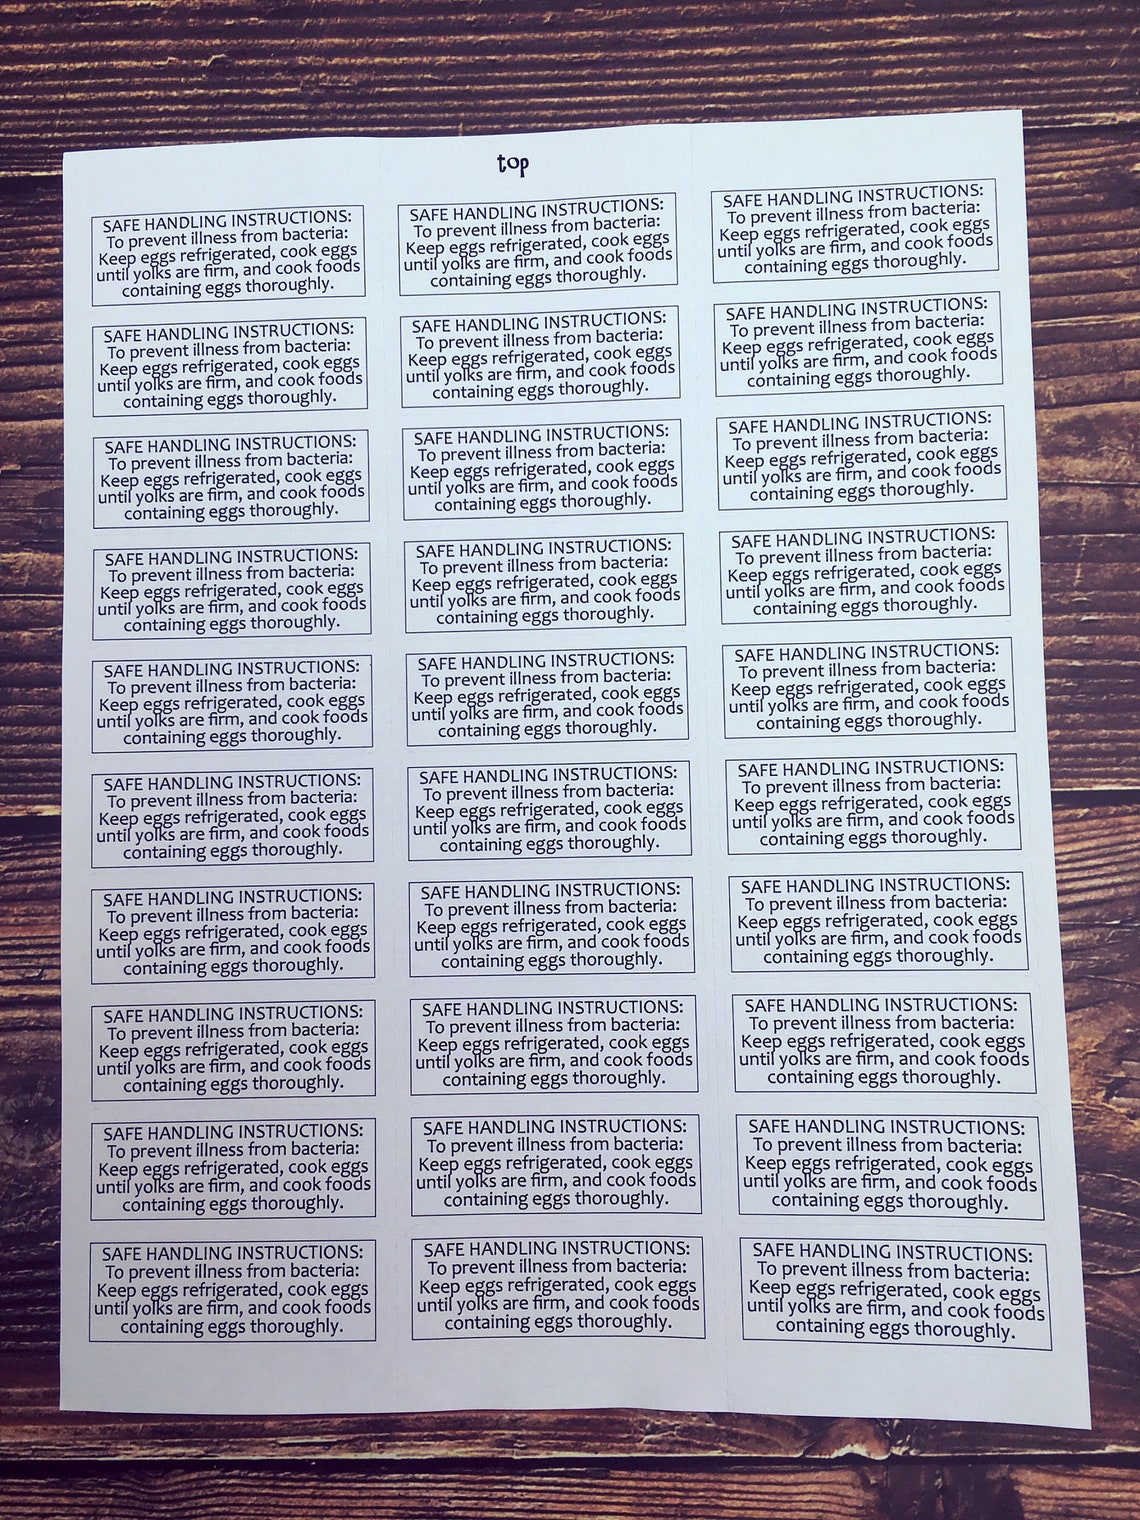 top
SAFE HANDLING INSTRUCTIONS:
To prevent illness from bacteria:
Keep eggs refrigerated, cook eggs
until yolks are firm, and cook foods
containing eggs thoroughly.
SAFE HANDLING INSTRUCTIONS:
To prevent illness from bacteria:
Keep eggs refrigerated, cook eggs
until yolks are firm, and cook foods
containing eggs thoroughly.
SAFE HANDLING INSTRUCTIONS:
To prevent illness from bacteria:
Keep eggs refrigerated, cook eggs
until yolks are firm, and cook foods
containing eggs thoroughly.
SAFE HANDLING INSTRUCTIONS:
To prevent illness from bacteria:
Keep eggs refrigerated, cook eggs
until yolks are firm, and cook foods
containing eggs thoroughly.
SAFE HANDLING INSTRUCTIONS:
To prevent illness from bacteria:
Keep eggs refrigerated, cook eggs
until yolks are firm, and cook foods
containing eggs thoroughly.
SAFE HANDLING INSTRUCTIONS:
To prevent illness from bacteria:
Keep eggs refrigerated, cook eggs
until yolks are firm, and cook foods
containing eggs thoroughly.
SAFE HANDLING INSTRUCTIONS:
To prevent illness from bacteria:
Keep eggs refrigerated, cook eggs
until yolks are firm, and cook foods
containing eggs thoroughly.
SAFE HANDLING INSTRUCTIONS:
To prevent illness from bacteria:
Keep eggs refrigerated, cook eggs
until yolks are firm, and cook foods
containing eggs thoroughly.
SAFE HANDLING INSTRUCTIONS:
To prevent illness from bacteria:
Keep eggs refrigerated, cook eggs
until yolks are firm, and cook foods
containing eggs thoroughly.
SAFE HANDLING INSTRUCTIONS:
To prevent illness from bacteria:
Keep eggs refrigerated, cook eggs
until yolks are firm, and cook foods
containing eggs thoroughly.
SAFE HANDLING INSTRUCTIONS:
To prevent illness from bacteria:
Keep eggs refrigerated, cook eggs
until yolks are firm, and cook foods
containing eggs thoroughly.
SAFE HANDLING INSTRUCTIONS:
To prevent illness from bacteria:
Keep eggs refrigerated, cook eggs
until yolks are firm, and cook foods
containing eggs thoroughly.
SAFE HANDLING INSTRUCTIONS:
To prevent illness from bacteria:
Keep eggs refrigerated, cook eggs
until yolks are firm, and cook foods
containing eggs thoroughly.
SAFE HANDLING INSTRUCTIONS:
To prevent illness from bacteria:
Keep eggs refrigerated, cook eggs
until yolks are firm, and cook foods
containing eggs thoroughly.
SAFE HANDLING INSTRUCTIONS:
To prevent illness from bacteria:
Keep eggs refrigerated, cook eggs
until yolks are firm, and cook foods
containing eggs thoroughly.
SAFE HANDLING INSTRUCTIONS:
To prevent illness from bacteria:
Keep eggs refrigerated, cook eggs
until yolks are firm, and cook foods
containing eggs thoroughly.
SAFE HANDLING INSTRUCTIONS:
To prevent illness from bacteria:
Keep eggs refrigerated, cook eggs
until yolks are firm, and cook foods
containing eggs thoroughly.
SAFE HANDLING INSTRUCTIONS:
To prevent illness from bacteria:
Keep eggs refrigerated, cook eggs
until yolks are firm, and cook foods
containing eggs thoroughly.
SAFE HANDLING INSTRUCTIONS:
To prevent illness from bacteria:
Keep eggs refrigerated, cook eggs
until yolks are firm, and cook foods
containing eggs thoroughly.
SAFE HANDLING INSTRUCTIONS:
To prevent illness from bacteria:
Keep eggs refrigerated, cook eggs
until yolks are firm, and cook foods
containing eggs thoroughly.
SAFE HANDLING INSTRUCTIONS:
To prevent illness from bacteria:
Keep eggs refrigerated, cook eggs
until yolks are firm, and cook foods
containing eggs thoroughly.
SAFE HANDLING INSTRUCTIONS:
To prevent illness from bacteria:
Keep eggs refrigerated, cook eggs
until yolks are firm, and cook foods
containing eggs thoroughly.
SAFE HANDLING INSTRUCTIONS:
To prevent illness from bacteria:
Keep eggs refrigerated, cook eggs
until yolks are firm, and cook foods
containing eggs thoroughly.
SAFE HANDLING INSTRUCTIONS:
To prevent illness from bacteria:
Keep eggs refrigerated, cook eggs
until yolks are firm, and cook foods
containing eggs thoroughly.
SAFE HANDLING INSTRUCTIONS:
To prevent illness from bacteria:
Keep eggs refrigerated, cook eggs
until yolks are firm, and cook foods
containing eggs thoroughly.
SAFE HANDLING INSTRUCTIONS:
To prevent illness from bacteria:
Keep eggs refrigerated, cook eggs
until yolks are firm, and cook foods
containing eggs thoroughly.
SAFE HANDLING INSTRUCTIONS:
To prevent illness from bacteria:
Keep eggs refrigerated, cook eggs
until yolks are firm, and cook foods
containing eggs thoroughly.
SAFE HANDLING INSTRUCTIONS:
To prevent illness from bacteria:
Keep eggs refrigerated, cook eggs
until yolks are firm, and cook foods
containing eggs thoroughly.
SAFE HANDLING INSTRUCTIONS:
To prevent illness from bacteria:
Keep eggs refrigerated, cook eggs
until yolks are firm, and cook foods
containing eggs thoroughly.
SAFE HANDLING INSTRUCTIONS:
To prevent illness from bacteria:
Keep eggs refrigerated, cook eggs
until yolks are firm, and cook foods
containing eggs thoroughly.